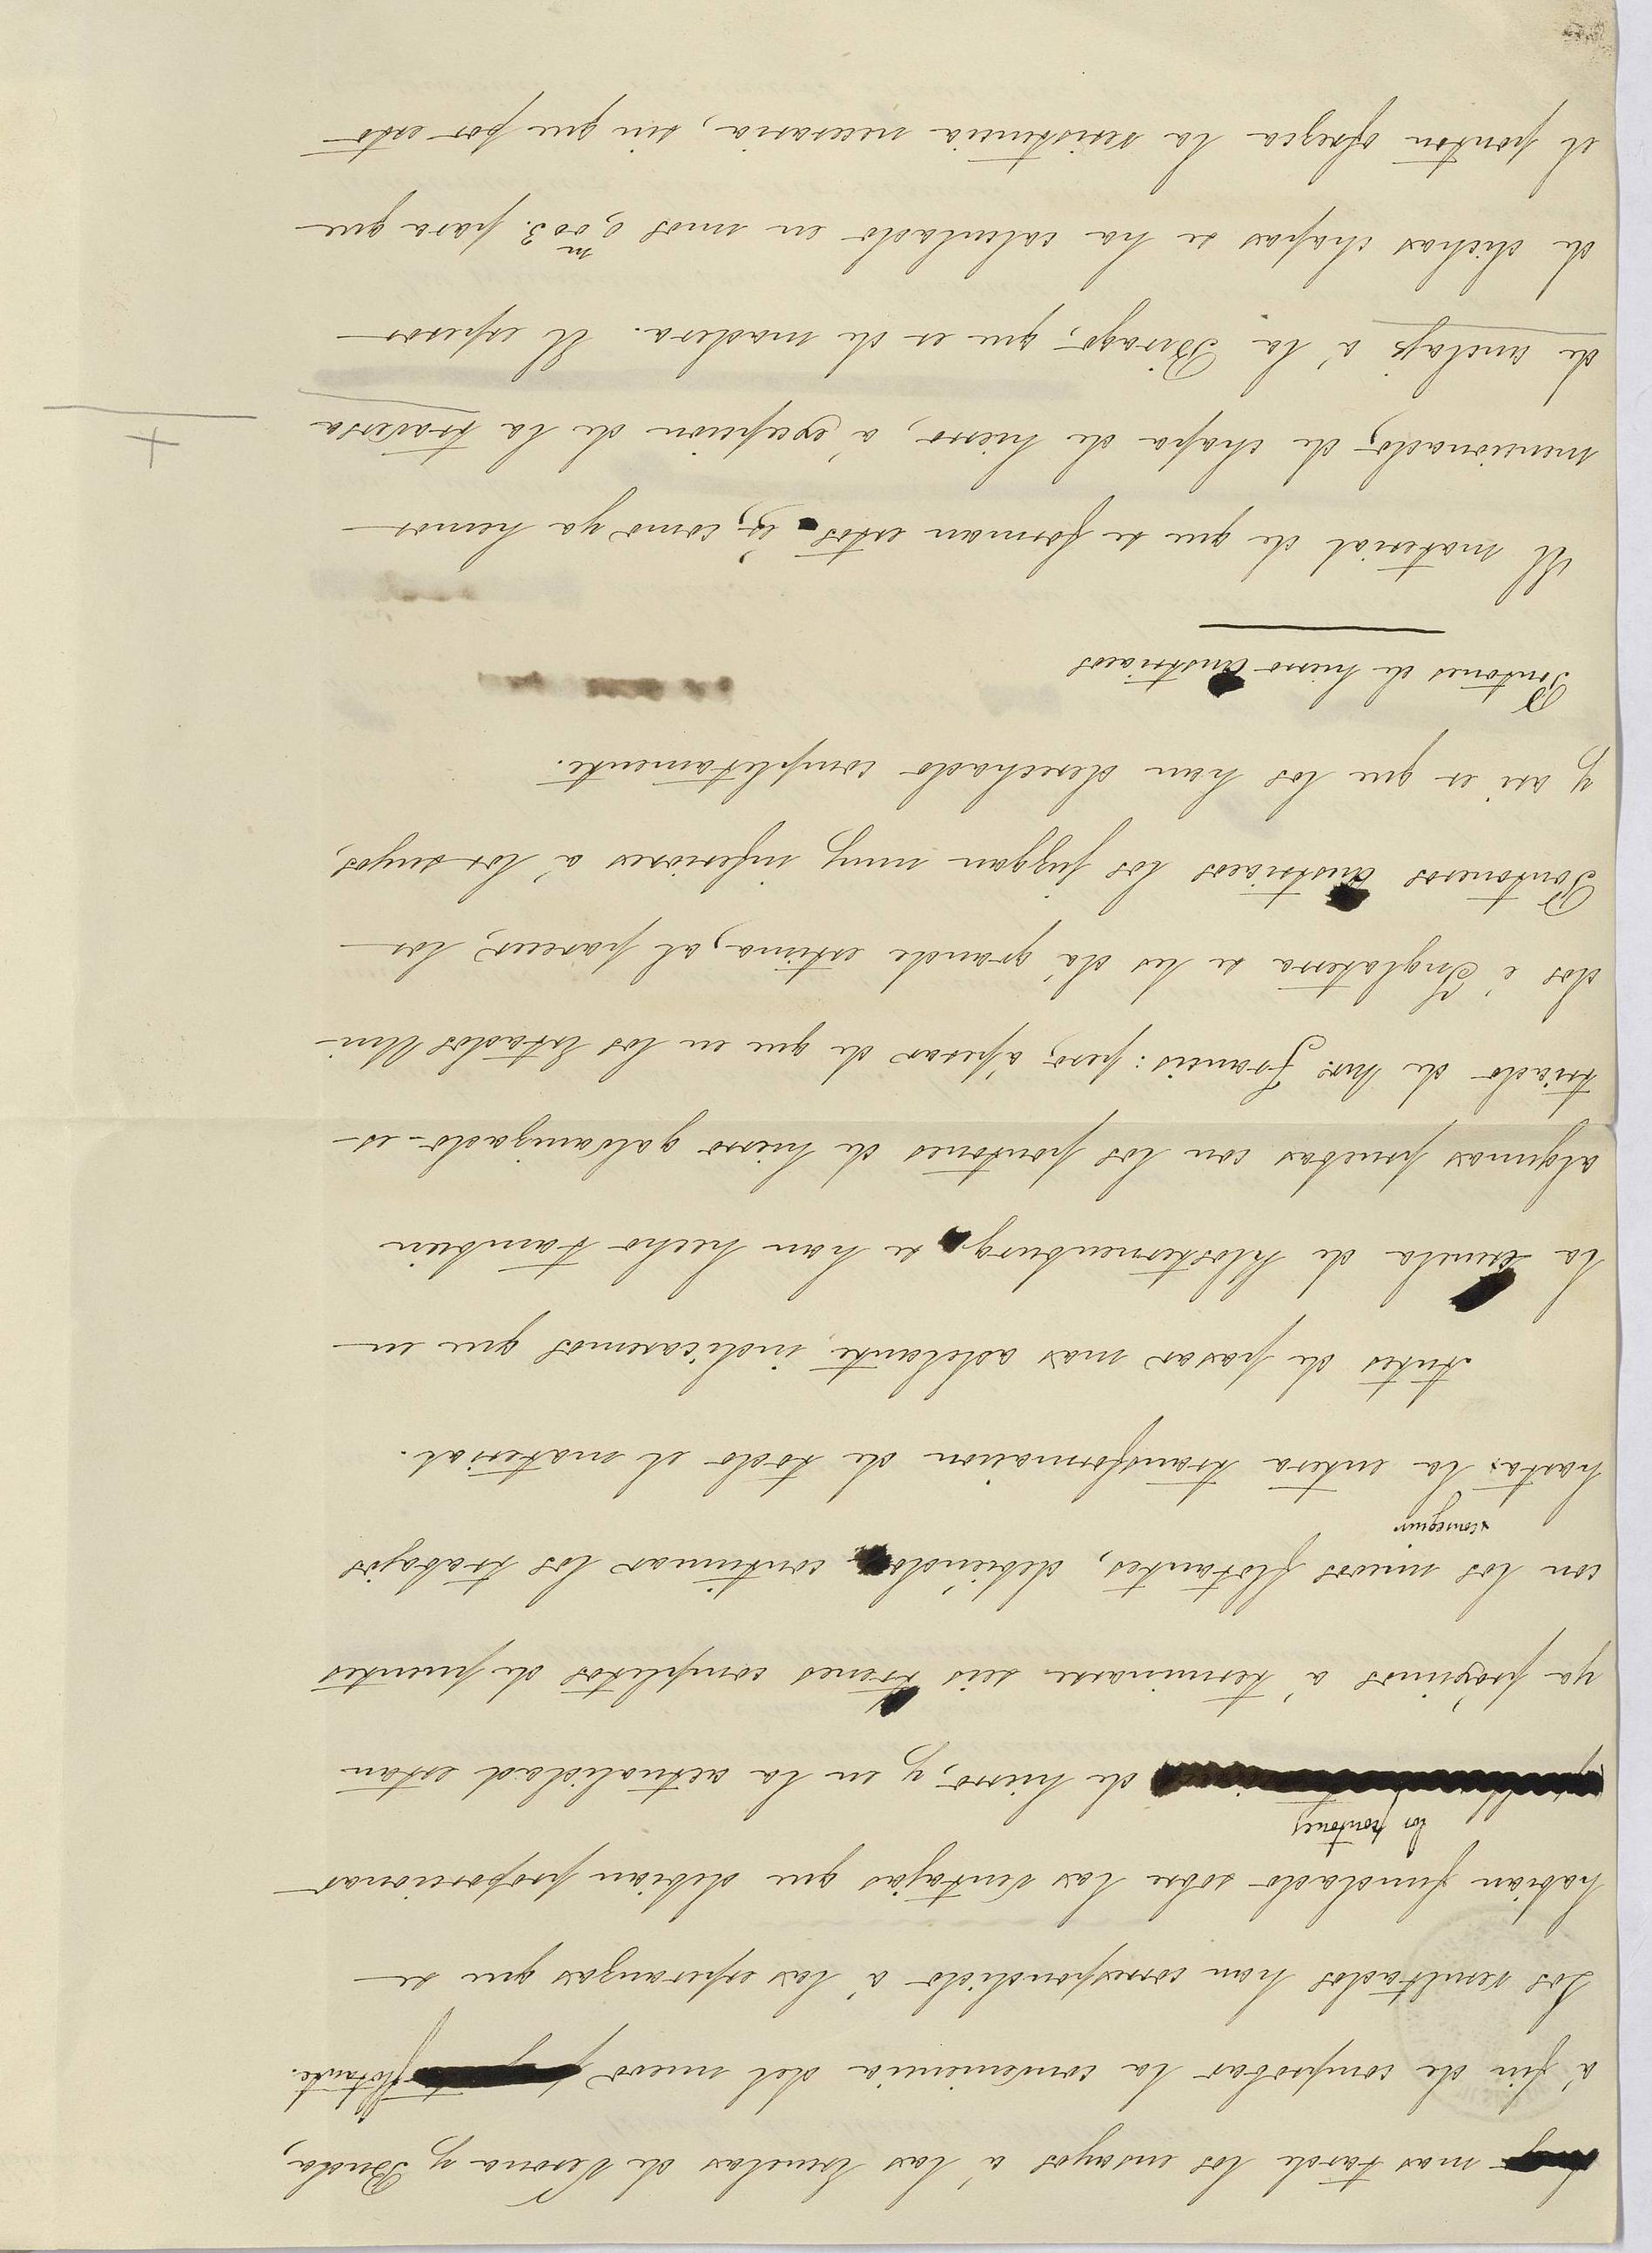 mas tarde los ensayos á las Escuelas de Verona y Buda,
á fin de comprobar la conveniencia del nuevo flotante.
Los resultados han correspondido á las esperanzas que se
habian fundado sobre las ventajas que debian proporcionar
los pontones
de hierro, y, en la actualidad estan
ya próximos á terminarse seis trenes completos de puentes
con los nuevos flotantes, debiendo continuar los trabajos
conseguir
hasta la entera transformacion de todo el material.
Antes de pasar mas adelante, indicaremos que en
la Escuela de Klosterneuburg se han hecho tambien
algunas pruebas con los pontones de hierro galvanizado es-
triado de Mr. Francis: pero, apesar de que en los Estados Uni-
dos é Inglaterra se les dá grande estima, al parecer, los
Pontoneros Austriacos los juzgan muy inferiores á los suyos,
y asi es que los han desechado completamente.
Pontones de hierro Austriacos
El material de que se forman estos es, como ya hemos
mencionado, de chapa de hierro, á excepcion de la traviesa
de anclaje á la Birago, que es de madera. El espesor
de dichas chapas se ha calculado en unos 0,m003. para que
el ponton ofrezca la resistencia necesaria, sin que por esto